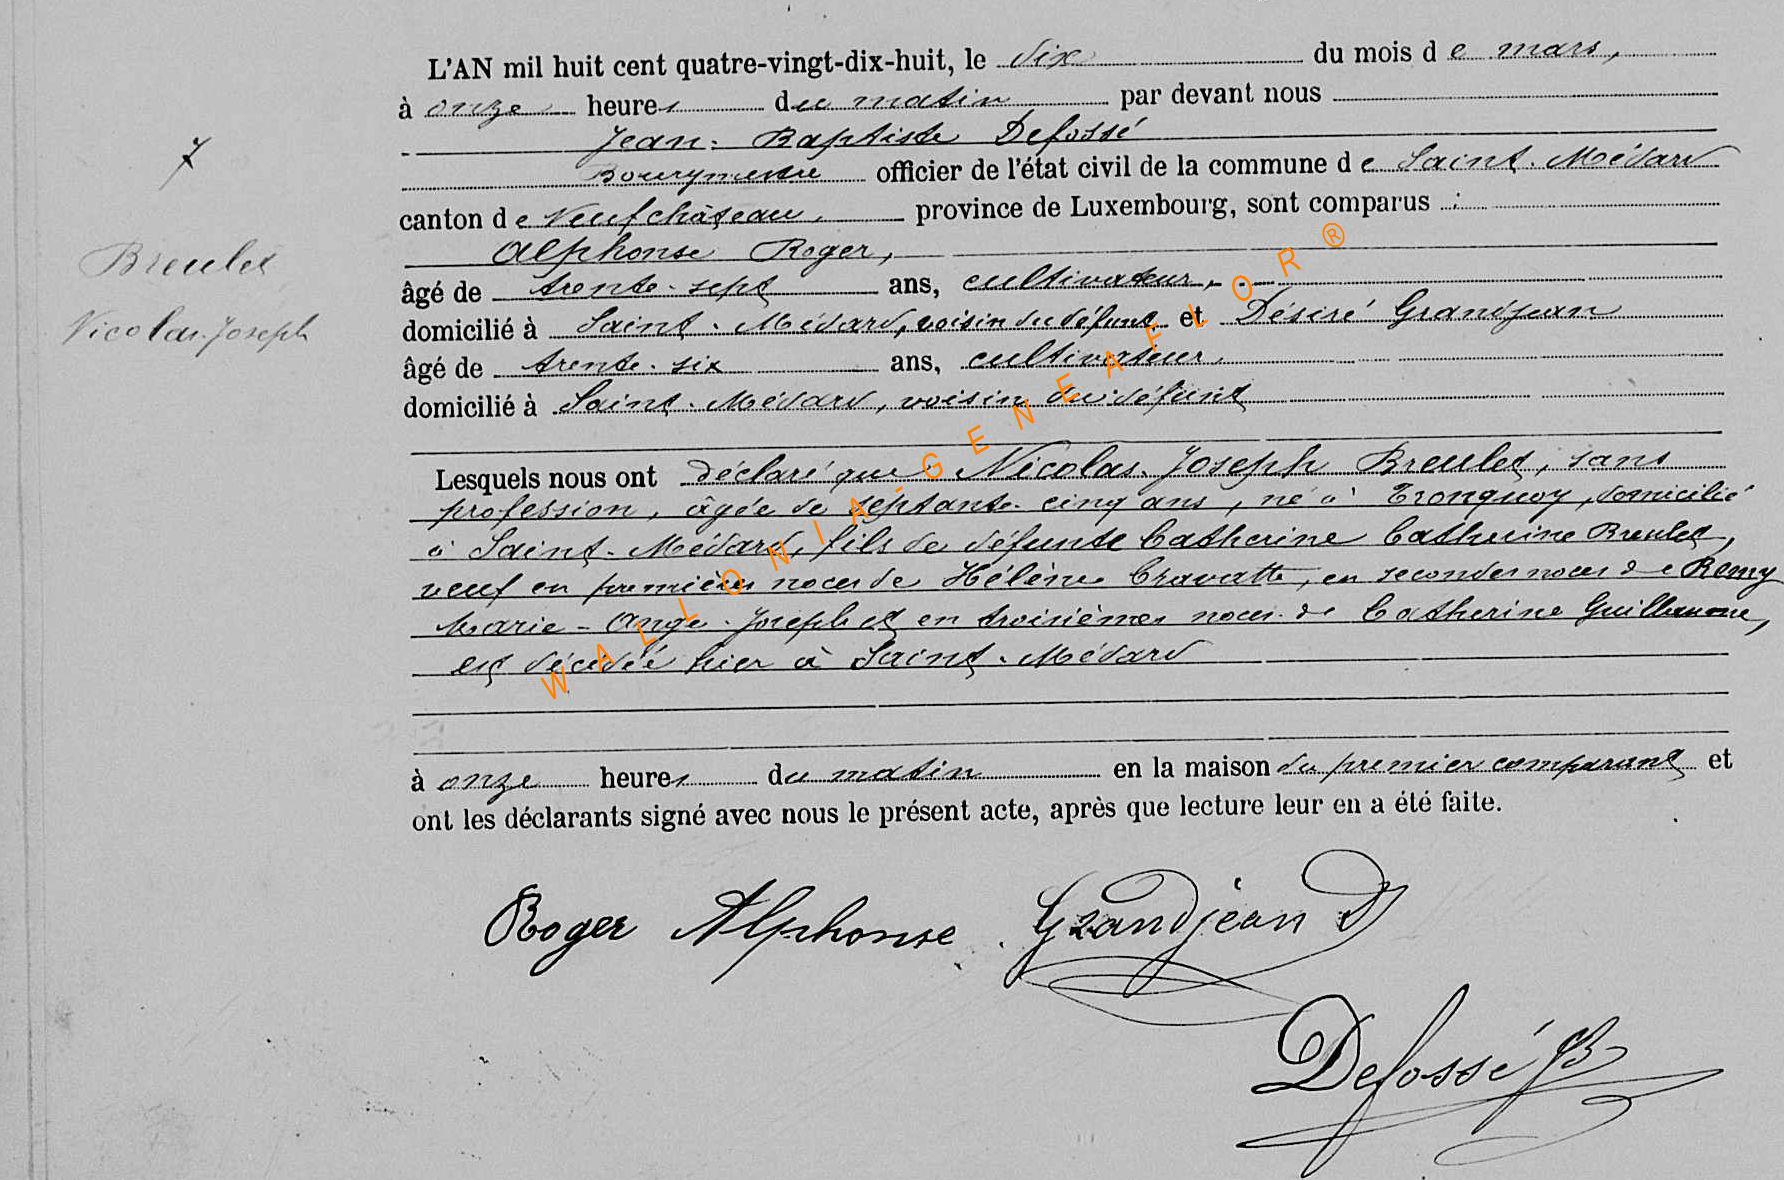 L'AN mil huit cent quatre-vingt-dix-huit, le dix du mois de mars,
à onze heures du matin par devant nous
Jean-Baptiste Defossé
7
Bourgmestre officier de l'état civil de la commune de Saint-Médard
canton de Neufchâteau, province de Luxembourg, sont comparus :
Breulet
Alphonse Roger,
âgé de trente-sept ans, cultivateur,
Nicolas-Joseph
domicilié à Saint-Médard, voisin du défunt et Désiré Grandjean
âgé de trente-six ans, cultivateur,
domicilié à Saint-Médard, voisin du défunt
Lesquels nous ont déclaré que Nicolas-Joseph Breulet, sans
profession, âgée de septante-cinq ans, né à Tronquoy, domicilié
à Saint-Médard, fils de défunte Catherine Catherine Breulet,
veuf en premières noces de Hélène Cravatte, en secondes noces de Remy
Marie-Ange-Joseph et en troisièmes noces de Catherine Guillaume,
est décédée hier à Saint-Médard
à onze heures du matin en la maison du premier comparant et
ont les déclarants signé avec nous le présent acte, après que lecture leur en a été faite.
Roger Alphonse Grandjean D
Defossé JB
WALLONIA-GENEAFLOR®